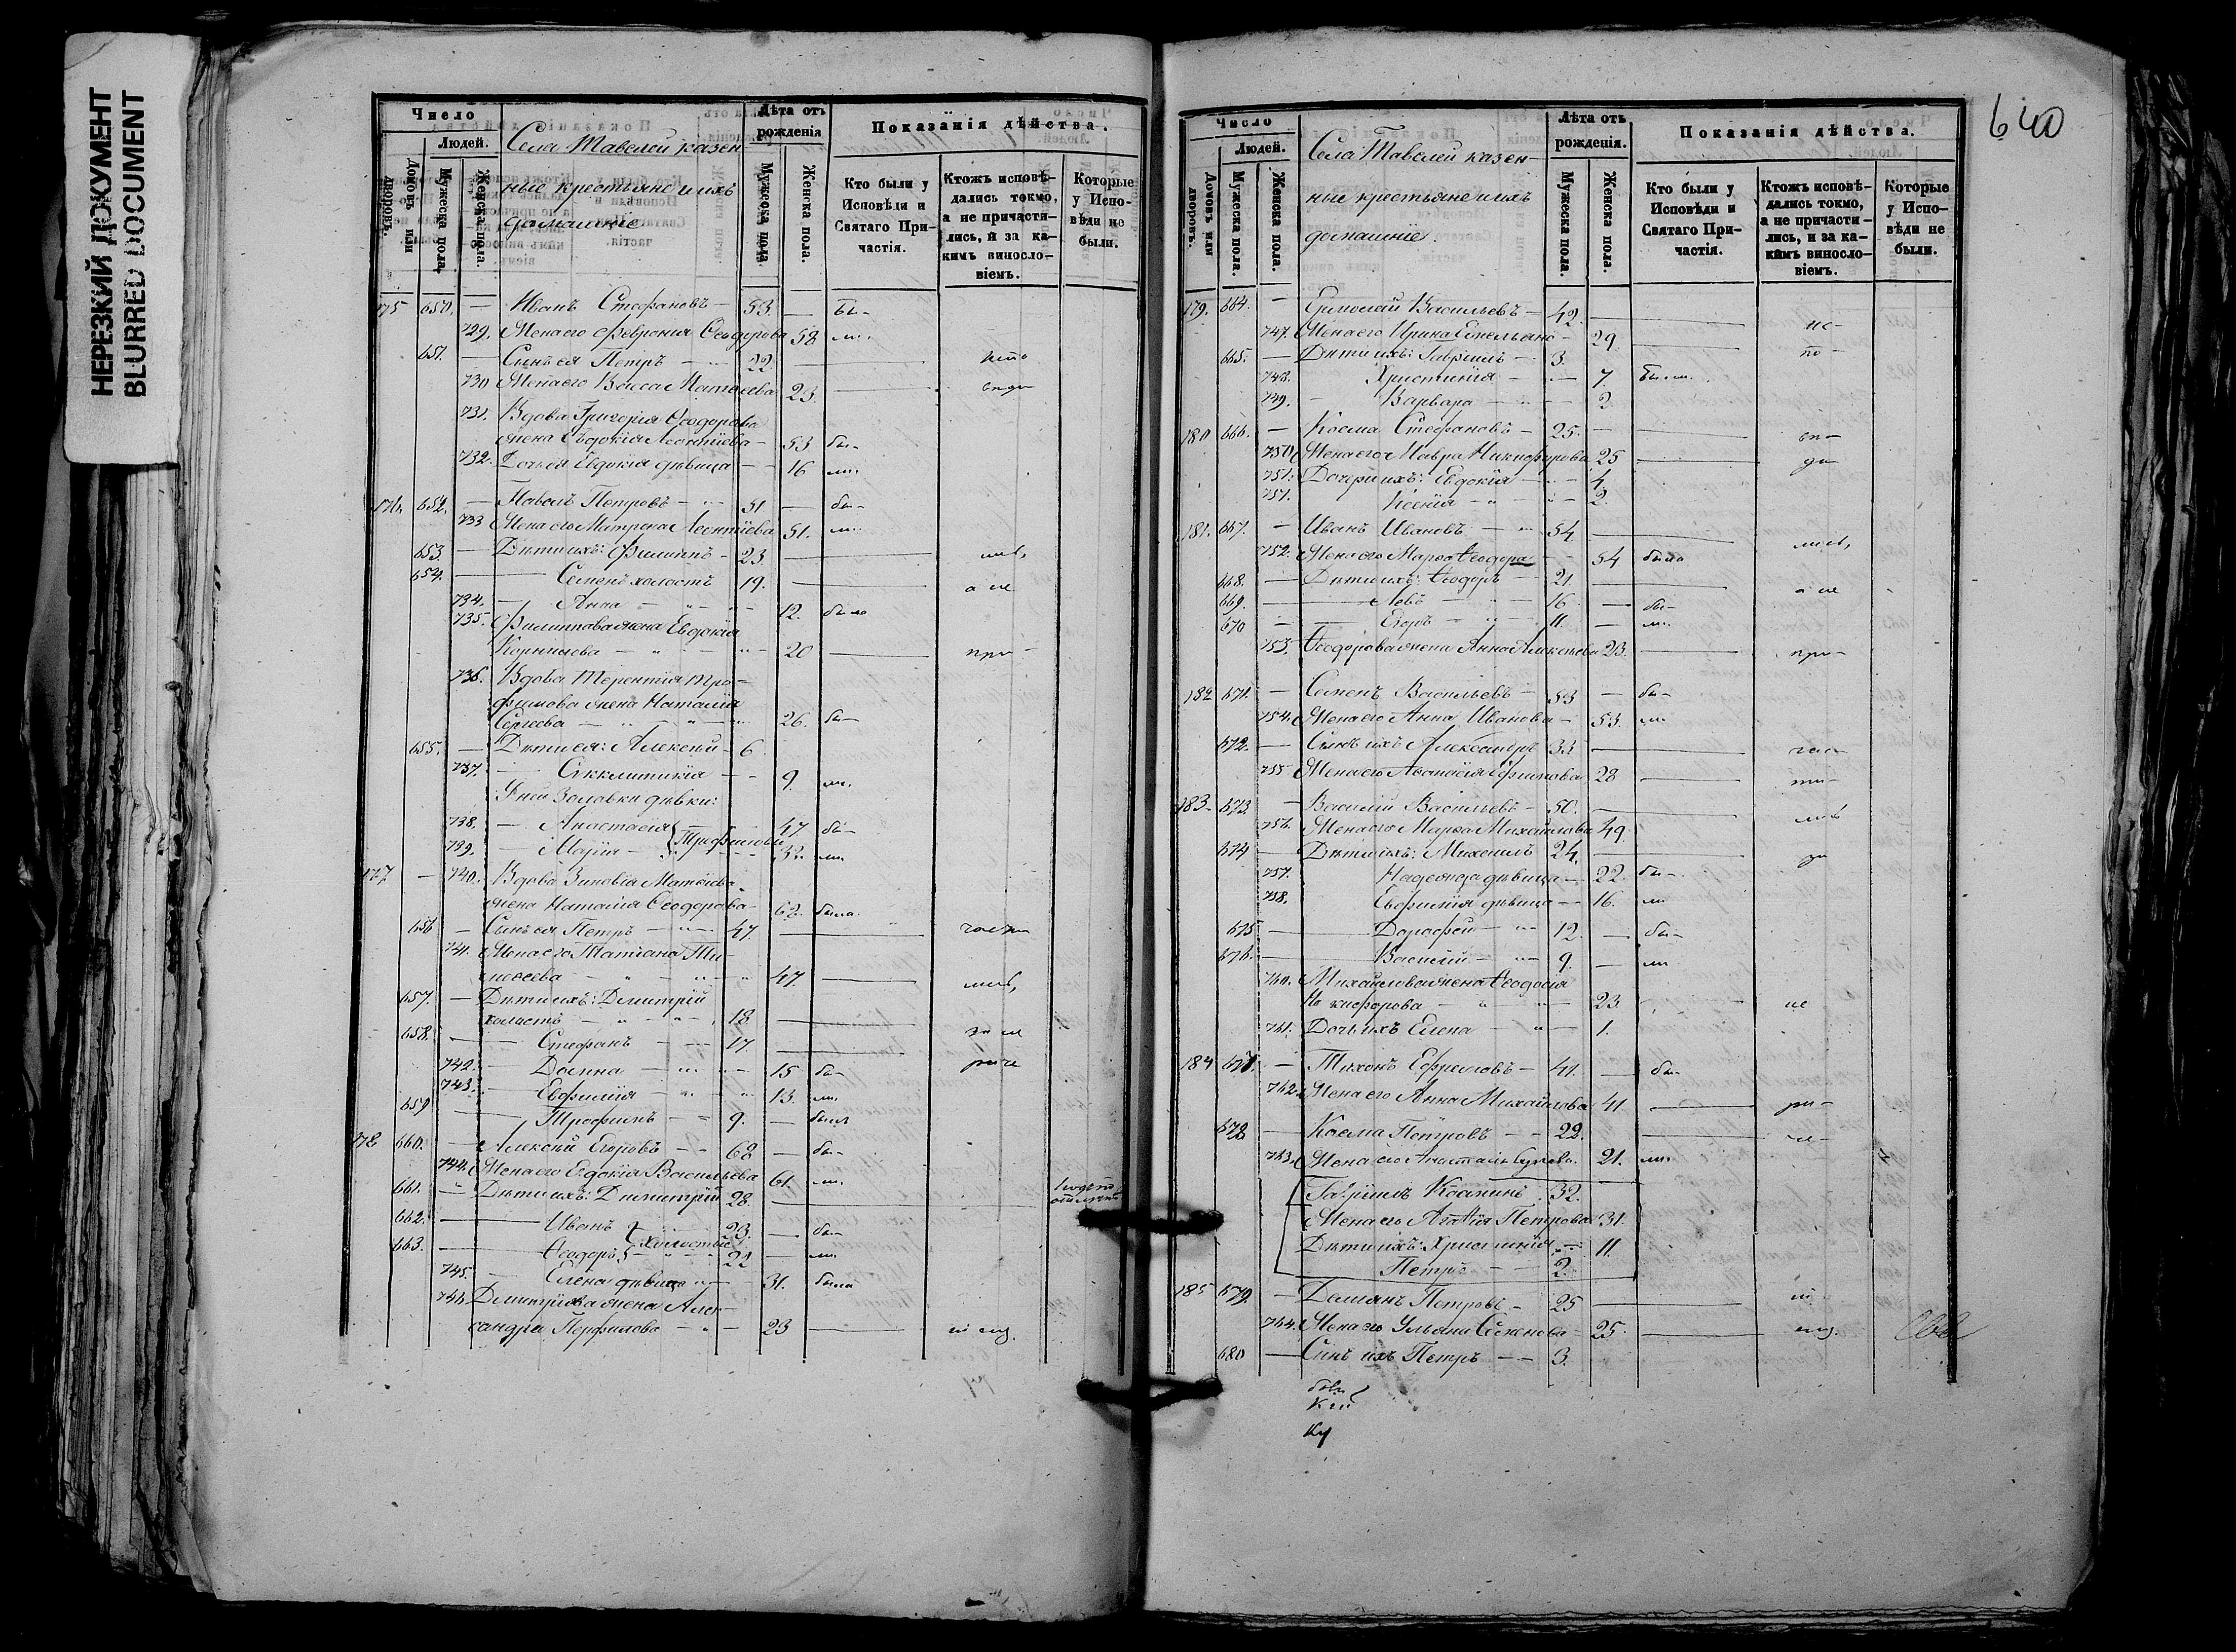 НЕРЕЗКИЙ ДОКУМЕНТ
BLURRED DOCUMENT
Число
Людей.
Домовъ или дворовъ.
Мужеска пола.
Женска пола.
Села Тавелей казен
ные крестьяне и ихъ
домашніе
Лѣта отъ рожденія
Мужеска пола.
Женска пола.
Показанія дѣйства.
Кто были у Исповѣди и Святаго Причастія.
Ктожъ исповѣдались токмо, а не причастились, и за какимъ винословіемъ.
Которые у Исповѣди не были.
175 650. — Иванъ Стефановъ — 53. — Бы-
729. Жена его Феврония Ѳеодорова 58 ли.
651. — Сынъ ея Петръ — 22. —
730 Жена его Васса Матѳеева 23. —
731. Вдова Григорія Ѳеодорова
жена Евдокія Леонтіева — 53 бы-
732. Дочь ея Евдокія дѣвица — 16 ли.
176. 652. — Павелъ Петровъ — 51 — бы-
733 Жена его Матрона Леонтіева 51. ли.
653. — Дѣти ихъ: Филиппъ — 23 —
654. — Семенъ холостъ 19. — а не
734. — Анна — 12. была
735. Филиппова жена Евдокія
Корнилова — 20 — при-
736. Вдова Терентія Тро-
фимова жена Наталія
Сергеева — 26. бы-
655. — Дѣти ея: Алексѣй — 6
737. — Сикклитикія — 9. ли.
У ней золовки дѣвки:
738. — Анастасія } Трофимовы 47 бы-
739. — Марія — 32. ли
177 — 740. Вдова Зиновія Матѳеева
жена Наталія Ѳеодорова — 62. была.
656 — Сынъ ея Петръ — 47. —
741. Жена его Татіана Ти-
моѳеева — 47. —
657. — Дѣти ихъ: Димитрій
холостъ — 18 —
658. — Стефанъ — 17. —
742. — Домна — 15 бы-
743. — Евфимія — 13. ли.
659 — Трофимъ — 9. — былъ
178 660. — Алексѣй Егоровъ — 68 — бы-
744. Жена его Евдокія Васильева 61. ли.
661. — Дѣти ихъ: Димитрій 28. —
662. — Иванъ } холостые 23. — бы-
663. — Ѳеодоръ 22 — ли.
745. — Елена дѣвица — 31. была
746. Димитріева жена Алек-
сандра Перфилова — 23 —
640
Число
Людей.
Домовъ или дворовъ.
Мужеска пола.
Женска пола.
Села Тавелей казен-
ные крестьяне и ихъ
домашніе.
Лѣта отъ рожденія.
Мужеска пола.
Женска пола.
Показанія дѣйства.
Кто были у Исповѣди и Святаго Причастія.
Ктожъ исповѣдались токмо, а не причастились, и за какимъ винословіемъ.
Которые у Исповѣди не были.
179. 664. — Ермолай Васильевъ — 42. — ис-
747. Жена его Ирина Емельяно- 29 — по-
665. — Дѣти ихъ: Гавріилъ — 3.
748. Христинія — 7. были.
749. — Варвара — 2
180 666. — Косма Стефановъ — 25. —
750. Жена его Мавра Никифорова 25 —
751. Дочери ихъ: Евдокія — 4.
751. Ксенія — 2.
181. 667. — Иванъ Ивановъ — 54 —
752. Жена его Марѳа Ѳеодоро — 54 была
668. — Дѣти ихъ: Ѳеодоръ — 21. — а не
669. — Левъ — 16 — бы-
670 — Егоръ — 11. — ли.
753. Ѳеодорова жена Анна Алексѣева 23. — при-
182 671. — Семенъ Васильевъ — 53 — бы-
754. Жена его Анна Иванова — 53. ли
672. — Сынъ ихъ Александръ 33 — час-
755 Жена его Анастасія Ефимова 28 — ти-
183. 673 — Василій Васильевъ — 50. —
756. Жена его Марѳа Михайлова 49.
674 — Дѣти ихъ: Михаилъ 24. — за
757. Надежда дѣвица — 22. бы-
758. Евфимія дѣвица — 16. ли
675 — Дороѳей — 12. — бы-
676. — Василій — 9. — ли
760. Михайлова жена Ѳеодосія
Никифорова — 23 не
761. Дочь ихъ Елена — 1.
184 677. — Тихонъ Ефремовъ — 41. — бы-
762. Жена его Анна Михайлова 41 —
678 — Косма Петровъ — 22. —
763. Жена его 21. ли.
Гавріилъ Косминъ 32.
Жена его Агафія Петрова 31.
Дѣти ихъ: Христинія — 11.
Петръ — 2.
185 679. — Деміанъ Петровъ — 25 —
764. Жена его Ульяна Семенова 25. —
680 — Сынъ ихъ Петръ — 3.